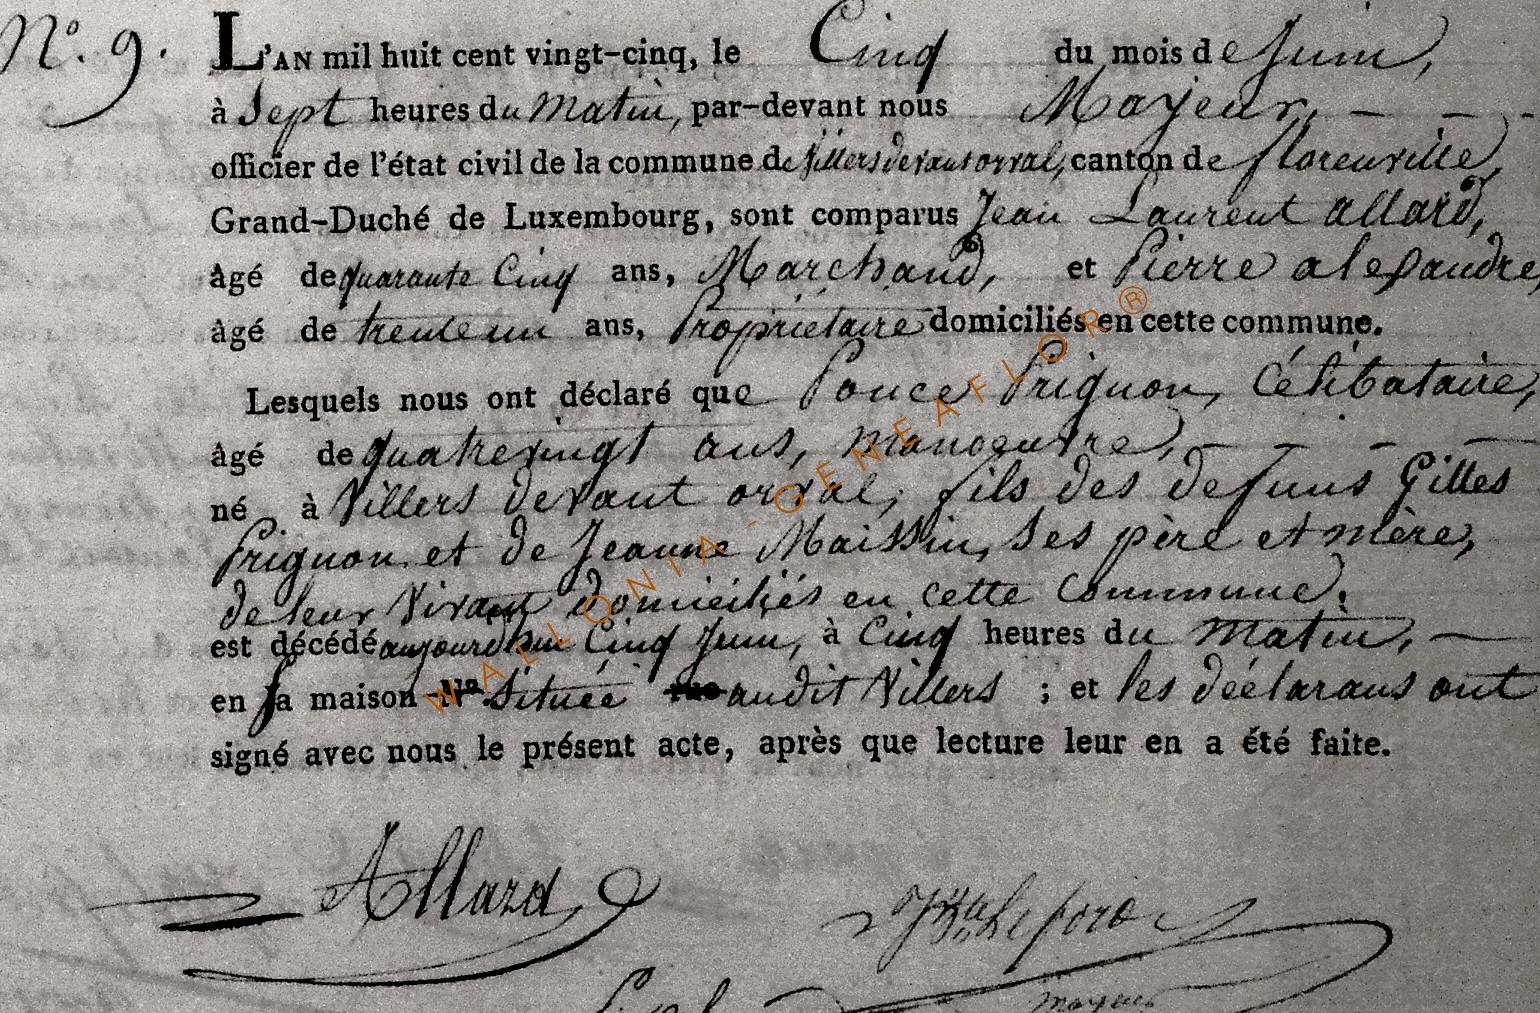 No. 9. L'AN mil huit cent vingt-cinq, le Cinq du mois de Juin,
à Sept heures du Matin, par-devant nous Mayeur,
officier de l'état civil de la commune de Villers devant orval, canton de florenville,
Grand-Duché de Luxembourg, sont comparus Jean Laurent allard,
âgé de quarante Cinq ans, Marchand, et Pierre alexandre,
âgé de trente un ans, Propriétaire domiciliés en cette commune.
Lesquels nous ont déclaré que Ponce Prignon, Célibataire,
âgé de quatrevingt ans, manoeuvre,
né à Villers devant orval, fils des defuns Gilles
Prignon et de Jeanne Maissin, ses père et mère,
de leur Vivant domiciliés en cette Commune,
est décédé aujourdhui Cinq Juin, à Cinq heures du Matin,
en sa maison située audit Villers ; et les déclarans ont
signé avec nous le présent acte, après que lecture leur en a été faite.
Allard
mayeur
WALLONIA-GENEAFLOR®